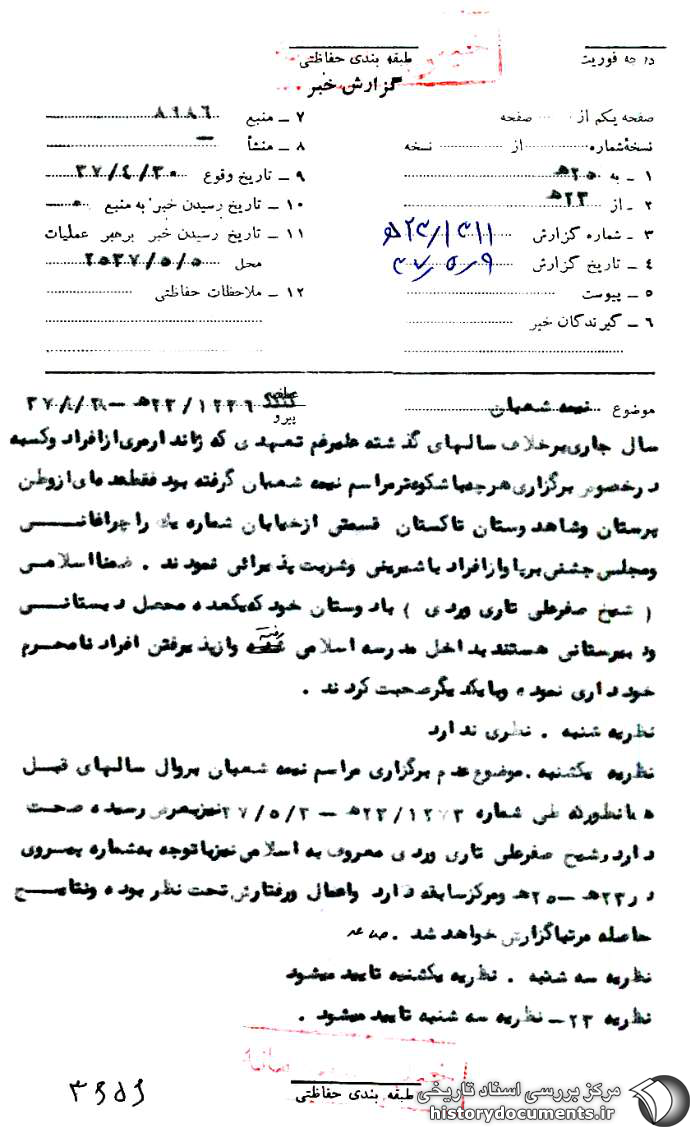 درجه فوریت
طبقه بندی حفاظتی
گزارش خبر
صفحه یکم از صفحه
نسخهٔ شماره از نسخه
۱ ـ به ۲۵ﻫ
۲ ـ از ۲۳ﻫ
۳ ـ شماره گزارش
۴ ـ تاریخ گزارش ۳۷/۵/۹
۵ ـ پیوست
۶ ـ گیرندگان خبر
۷ ـ منبع ۸۹۸۶
۸ ـ منشأ —
۹ ـ تاریخ وقوع ۳۷/۴/۳۰
۱۰ ـ تاریخ رسیدن خبر به منبع
۱۱ ـ تاریخ رسیدن خبر برهبر عملیات
محل ۲۵۳۷/۵/۵
۱۲ ـ ملاحظات حفاظتی
موضوع نیمه شعبان
پیرو ۲۳/۱۲۲۶ﻫ —
سال جاری برخلاف سالهای گذشته علیرغم تعهدی که ژاندارمری از افراد وکسبه
در خصوص برگزاری هرچه باشکوه‌تر مراسم نیمه شعبان گرفته بود فقط عده‌ای از وطن
پرستان وشاهدوستان تاکستان قسمتی از خیابان شماره یک را چراغانی
ومجلس جشنی برپا واز افراد با شیرینی وشربت پذیرائی نمودند . ضمنا اسلامی
( شیخ صفرعلی تاری وردی ) با دوستان خود که یکعده محصل دبستانی
ودبیرستانی هستند بداخل مدرسه اسلامی رفته واز پذیرفتن افراد نامحرم
خودداری نموده وبا یکدیگر صحبت کردند .
نظریه شنبه . نظری ندارد
نظریه یکشنبه . موضوع عدم برگزاری مراسم نیمه شعبان بروال سالهای قبل
همانطورکه طی شماره ۲۳/۱۲۷۳ﻫ — ۳۷/۵/۲ نیز بعرض رسیده صحت
دارد وشیخ صفرعلی تاری وردی معروف به اسلامی نیز با توجه به شماره پیروی
در ۲۳ﻫ — ۲۵ﻫ ومرکز سابقه دارد واعمال ورفتارش تحت نظر بوده ونتایج
حاصله مرتبا گزارش خواهد شد .
نظریه سه شنبه . نظریه یکشنبه تایید میشود
نظریه ۲۳ ـ نظریه سه شنبه تایید میشود .
طبقه بندی حفاظتی
مرکز بررسی اسناد تاریخی
historydocuments.ir